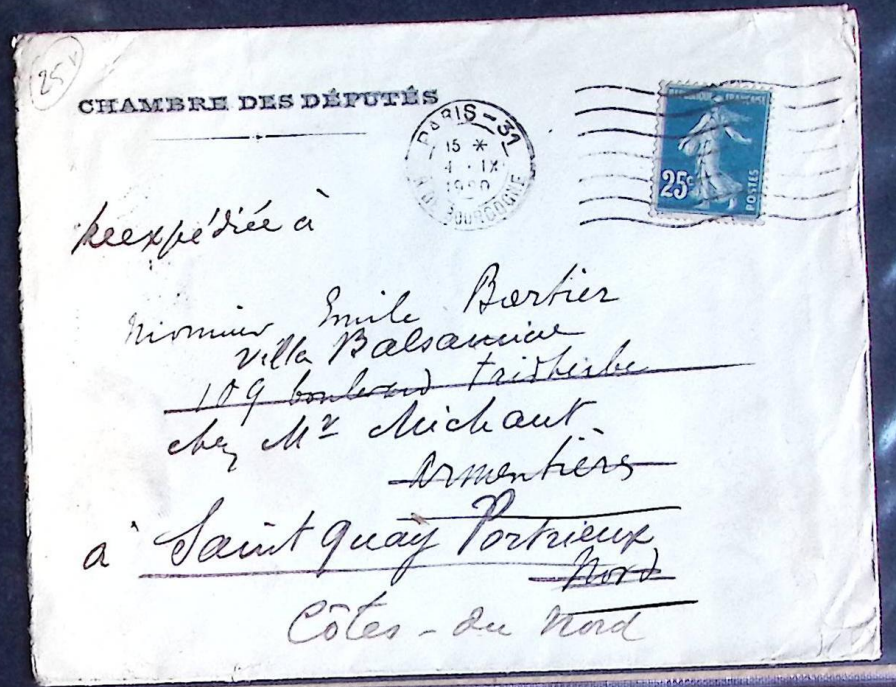 25
CHAMBRE DES DÉPUTÉS
PARIS-31
15 *
4 · IX
BOURGOGNE
FRANÇAISE
25c
POSTES
Reexpédiée à
Monsieur Emile Bartier
Villa Balsamine
109 boulevard Faidherbe
chez Mr Michaut
Armentières
à Saint Quay Portrieux
Nord
Côtes-du Nord